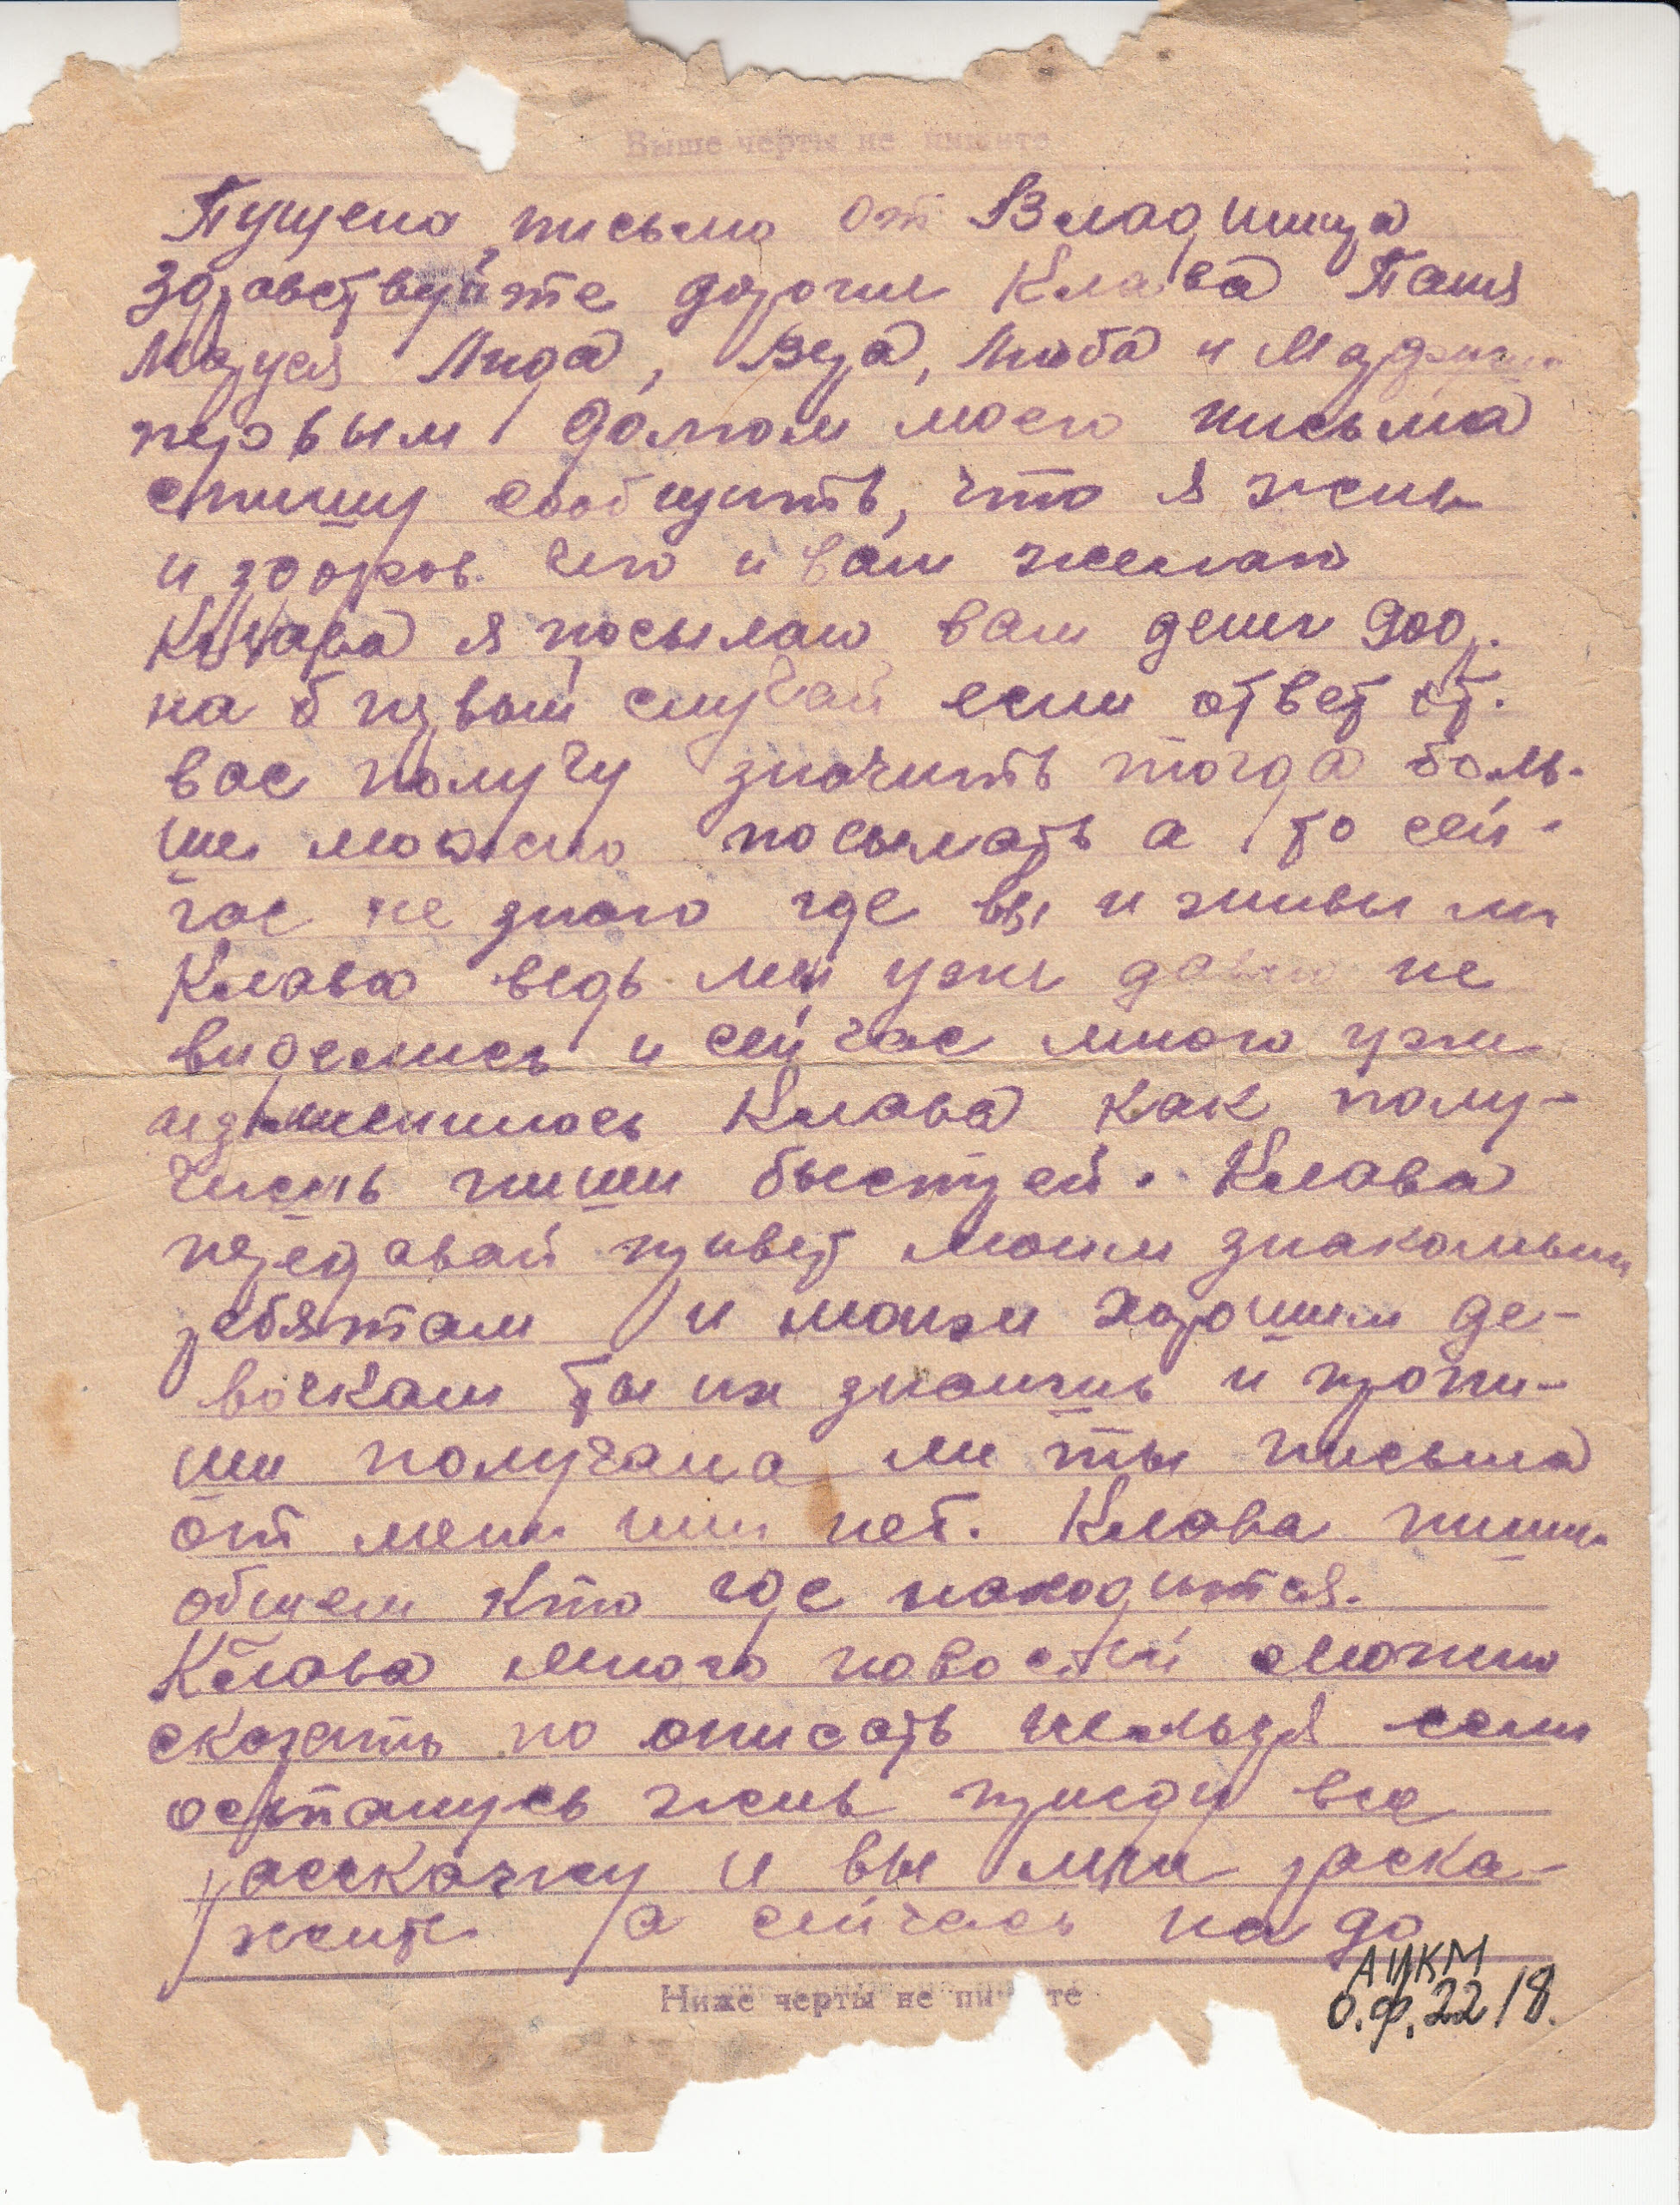 Выше черты не пишите
Пущено письмо от Владимира
Здравствуйте дорогие Клава Паша
Маруся Лида, Вера, Люба и
первым долгом моего письма
спишу сообщить, что я жив
и здоров. чего и вам желаю
Клава я посылаю вам денег 900р.
на б первый случай если ответ от.
вас получу значить тогда боль-
ше можно посылать а то сей-
час не знаю где вы и живы ли
Клава ведь мы уже давно не
виделись и сейчас много уже
изменилось Клава как полу-
чишь пиши быстрей. Клава
передавай привет моим знакомым
ребятам и моим хорошим де-
вочкам ты их знаишь и пропи-
ши получала ли ты письма
от меня или нет. Клава пиши
общем кто где находится.
Клава много новостей можно
сказать но описать нельзя если
останусь жив приеду все
расскажу и вы мне раска-
жите а сейчась надо
Ниже черты не пи те
АИКМ
О.ф.22/8.